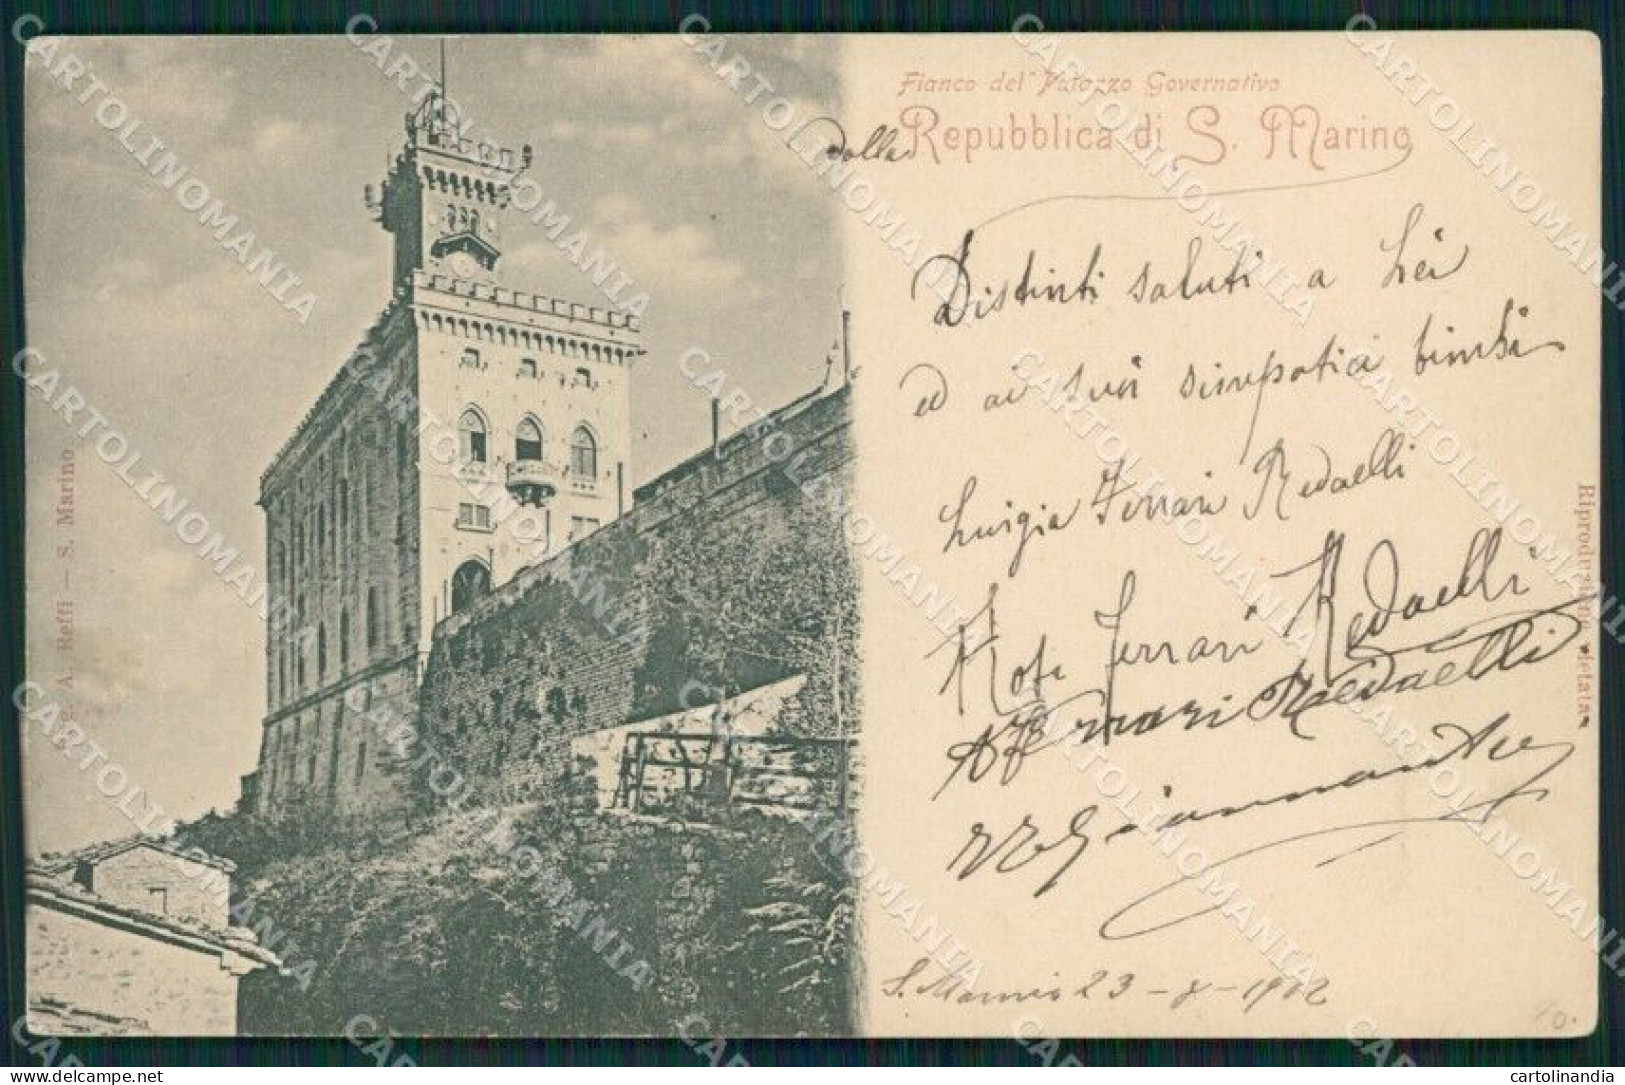 Fianco del Palazzo Governativo
dalla Repubblica di S. Marino
Distinti saluti a Lei
ed ai suoi simpatici bimbi
Luigia Ferrari Redaelli
Ferrari Redaelli
Ferrari Redaelli
S. Marino 23-8-1902
A. Reffi – S. Marino
Riproduzione vietata
CARTOLINOMANIA
cartolinandia